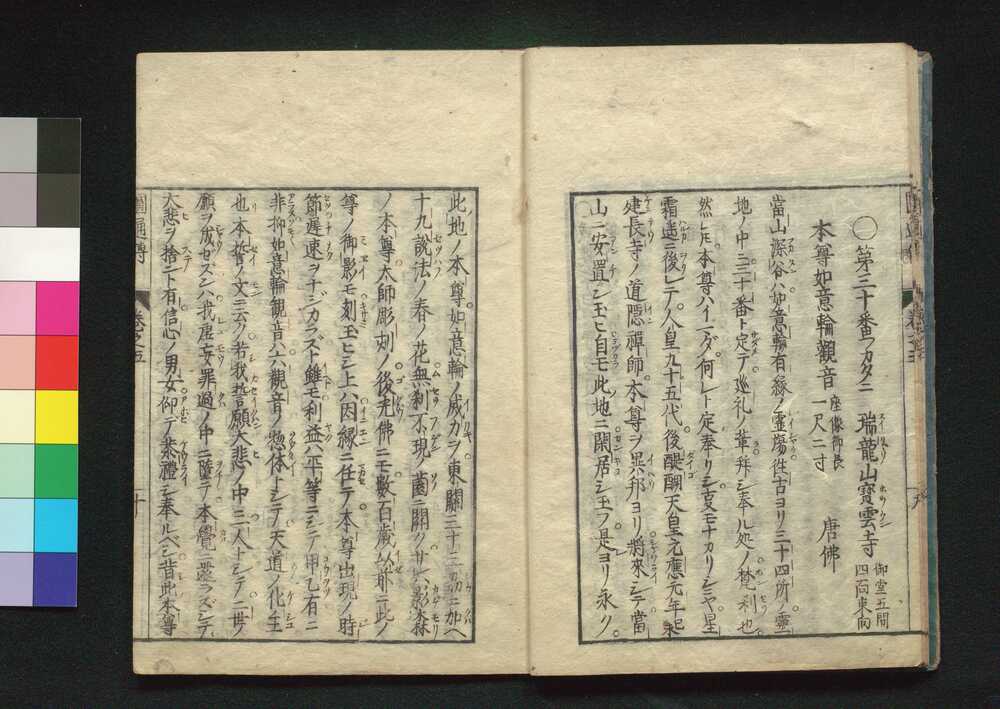 〇第三十番フカタニ 瑞龍山寳雲寺 御堂五間四面東向
本尊如意輪觀音 座像御長一尺二寸 唐佛
當山深谷ハ如意輪有縁ノ靈塲往古ヨリ三十四所ノ靈
地ノ中三十番ト定テ巡礼ノ輩拜シ奉ル処ノ梵刹也
然レ𪜈本尊ハイマダ何レト定奉リシ支モナカリシニヤ星
霜遙ニ後レテ人皇九十五代後醍醐天皇元應元年
建長寺ノ道隱禪師本尊ヲ異邦ヨリ將來シテ當
山ニ安置シ玉ヒ自モ此地ニ閑居シ玉フ是ヨリ永ク
此地ノ本尊如意輪ノ威力ヲ東關三十三 ニ加ヘ
十九説法ノ春ノ花無刹不現ノ薗ニ開クサレバ影森
ノ本尊大師彫刻ノ後光佛ニモ數百歳 此ノ
尊ノ御影モ刻玉ヒシ上ハ因縁ニ任テ本尊出現ノ時
節遲速ヲナジカラズト雖モ利益ハ平等ニシテ甲乙有ニ
非抑如意輪觀音ハ六觀音ノ惣体トシテ天道ノ化主
也本誓ノ文ニ云ク若我誓願大悲ノ中ニ一人トシテ二世ノ
願ヲ成ゼズンバ我虚妄罪過ノ中ニ墮テ本覺ニ還ラズシテ
大悲ヲ捨ント有信心ノ男女仰テ恭禮シ奉ルベシ昔此本尊
圓通傳
卷之五
十